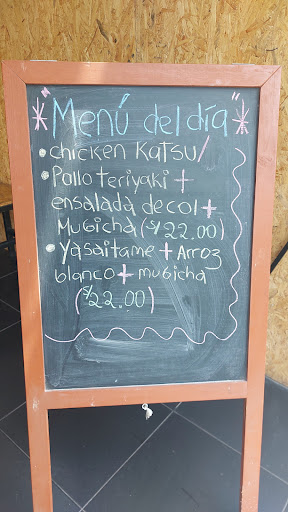 "Menú del día"
• chicken Katsu/
Pollo teriyaki +
ensalada de col +
Mugicha (S/22.00)
• Yasaitame + Arroz
blanco + mugicha
(S/22.00)